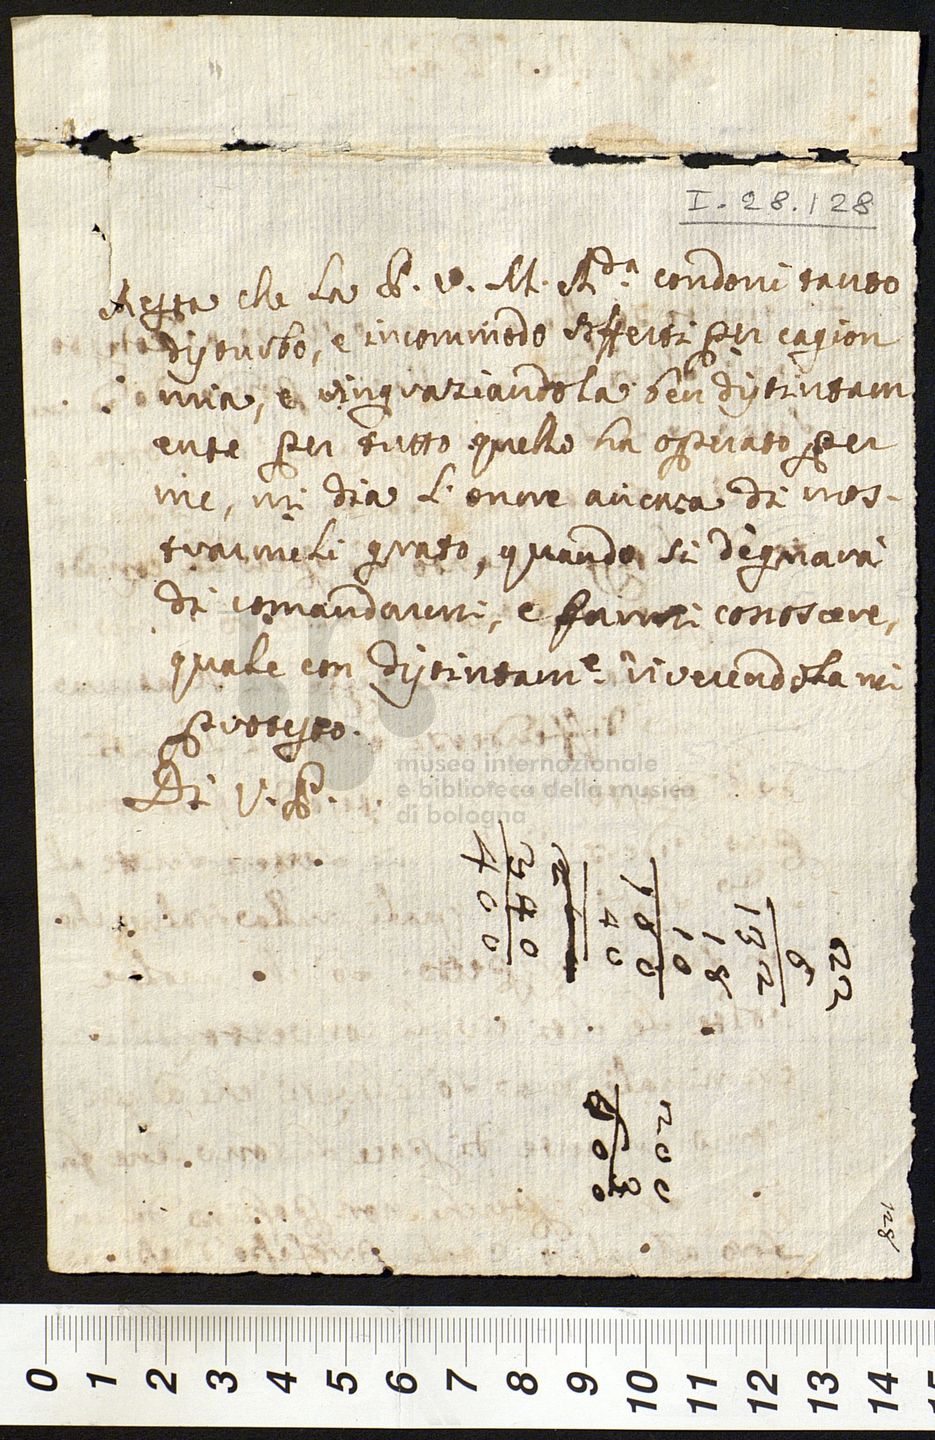 I.28.128
Resta che la P. V. M. Rda. condoni tanto
disturbo, e incommodo sofferti per cagion
mia, e ringraziandola ben distintam
ente per tutto quello ha operato per
me, mi dia l'onore ancora di mos-
trarmeli grato, quando si degnarà
di comandarmi, e farmi conoscere,
quale con distintame. riverendola mi
protesto.
Di V. P.
museo internazionale
e biblioteca della musica
di bologna
22
6
132
18
10
180
40
340
400
200
128
0 1 2 3 4 5 6 7 8 9 10 11 12 13 14